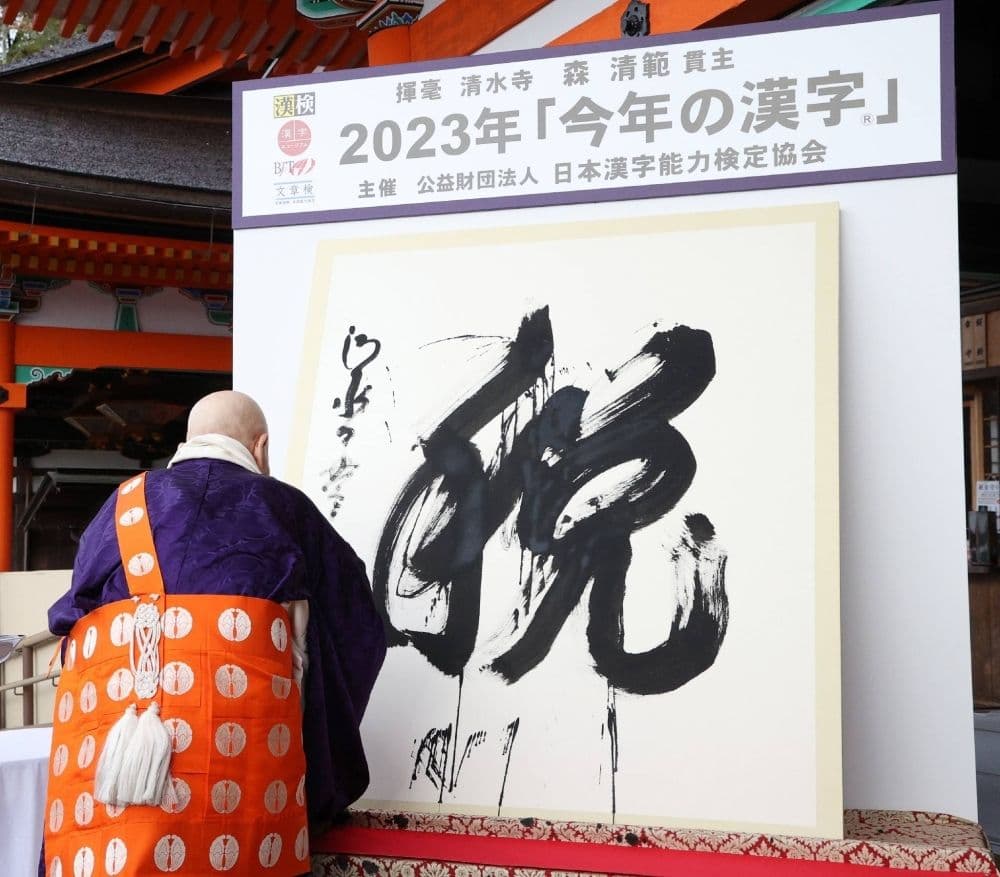 揮毫 清水寺 森 清範 貫主
2023年「今年の漢字®」
主催 公益財団法人 日本漢字能力検定協会
漢検
漢字
ミュージアム
BJT
文章検
税
清水寺